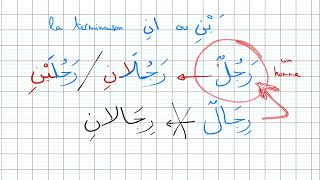 la terminaison انِ ou يْنِ
un homme
رَجُلٌ ← رَجُلَانِ / رَجُلَيْنِ
رِجَالٌ ← رِجَالَانِ